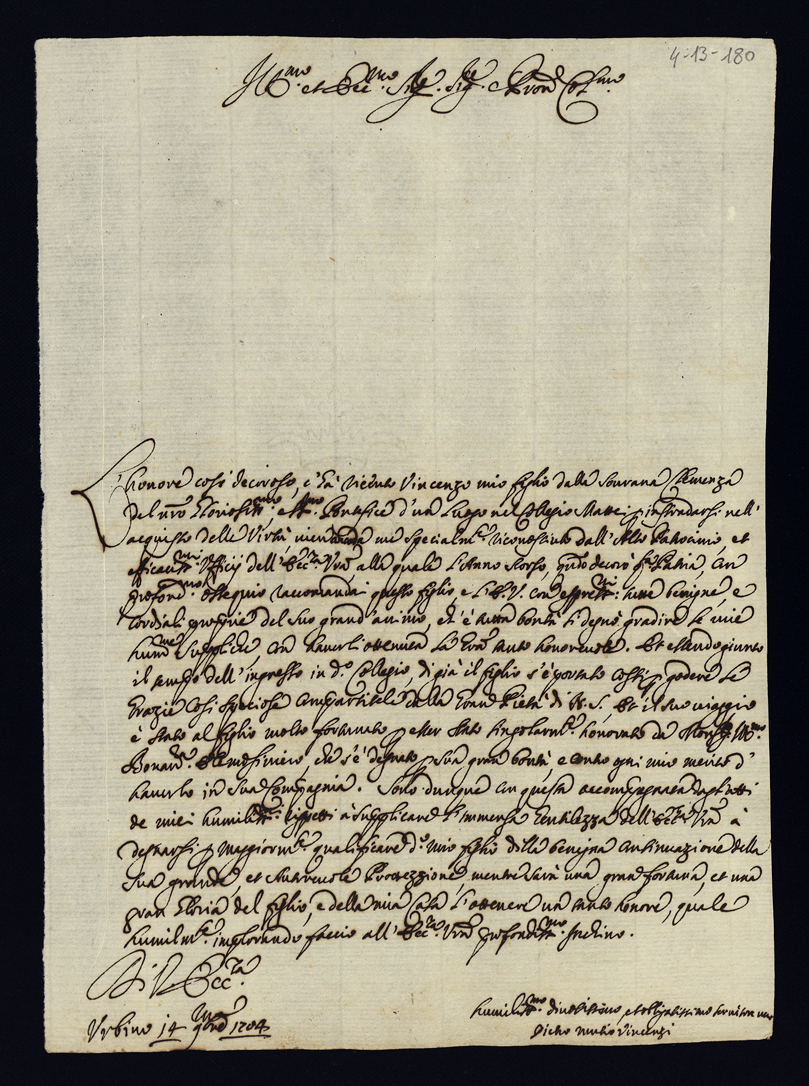 4-13-180
Ill.mo et Ecc.mo Sig.re Sig.re e Pron Col.mo
L'honore così decoroso, c'hà riceuto Vincenzo mio figlio dalla Sourana Clemenza
del nro Gloriosiss.mo Pontefice d'un Luogo nel Collegio Mattei p instradarsi nell'
acquisto delle Virtù, uien me specialm.te riconosciuto dall'Alto Patrocinio, et
efficaciss.mi Vfficij dell'Ecc.za Vrã alla quale l'Anno scorso, decorò Patria, con
profond.mo ossequio raccomandai questo figlio, e l'E.V. con tutte benigne, e
cordiali proprie del suo grand'animo, et è tutta bontà si degnò gradire le mie
hum.me suppliche con hauerli ottenuta la honoreuole. Et essendo giunto
il tempo dell'ingresso in d.o Collegio, di già il figlio s'è portato costì p godere le
Grazie così speciose compartiteli dalla Gran Pietà di N.S. Et il suo uiaggio
è stato al figlio molto fortunato p esser stato singolarm.te honorato da Mons.r
Elemosiniero, che s'è degnato p sua gran bontà, e contro ogni mio merito d'
hauerlo in sua Compagnia. Sono dunque con questa accompagnata dagl'atti
de miei humiliss.mi rispetti à supplicare l'immensa Gentilezza dell'Ecc.za Vrã à
degnarsi p maggiorm.te qualificare d.o mio figlio della benigna continuazione della
sua grande, et Autoreuole Protezzione, mentre sarà una gran fortuna, et una
gran Gloria del figlio, e della mia Casa l'ottenere un tanto honore, quale
humilm.te implorando faccio all'Ecc.za Vrã profondiss.mo Inchino.
Di V. Ecc.za
Vrbino 14 1704
humiliss.mo diuotissimo, et obligatissimo seruitore
Pietro Vincenzi